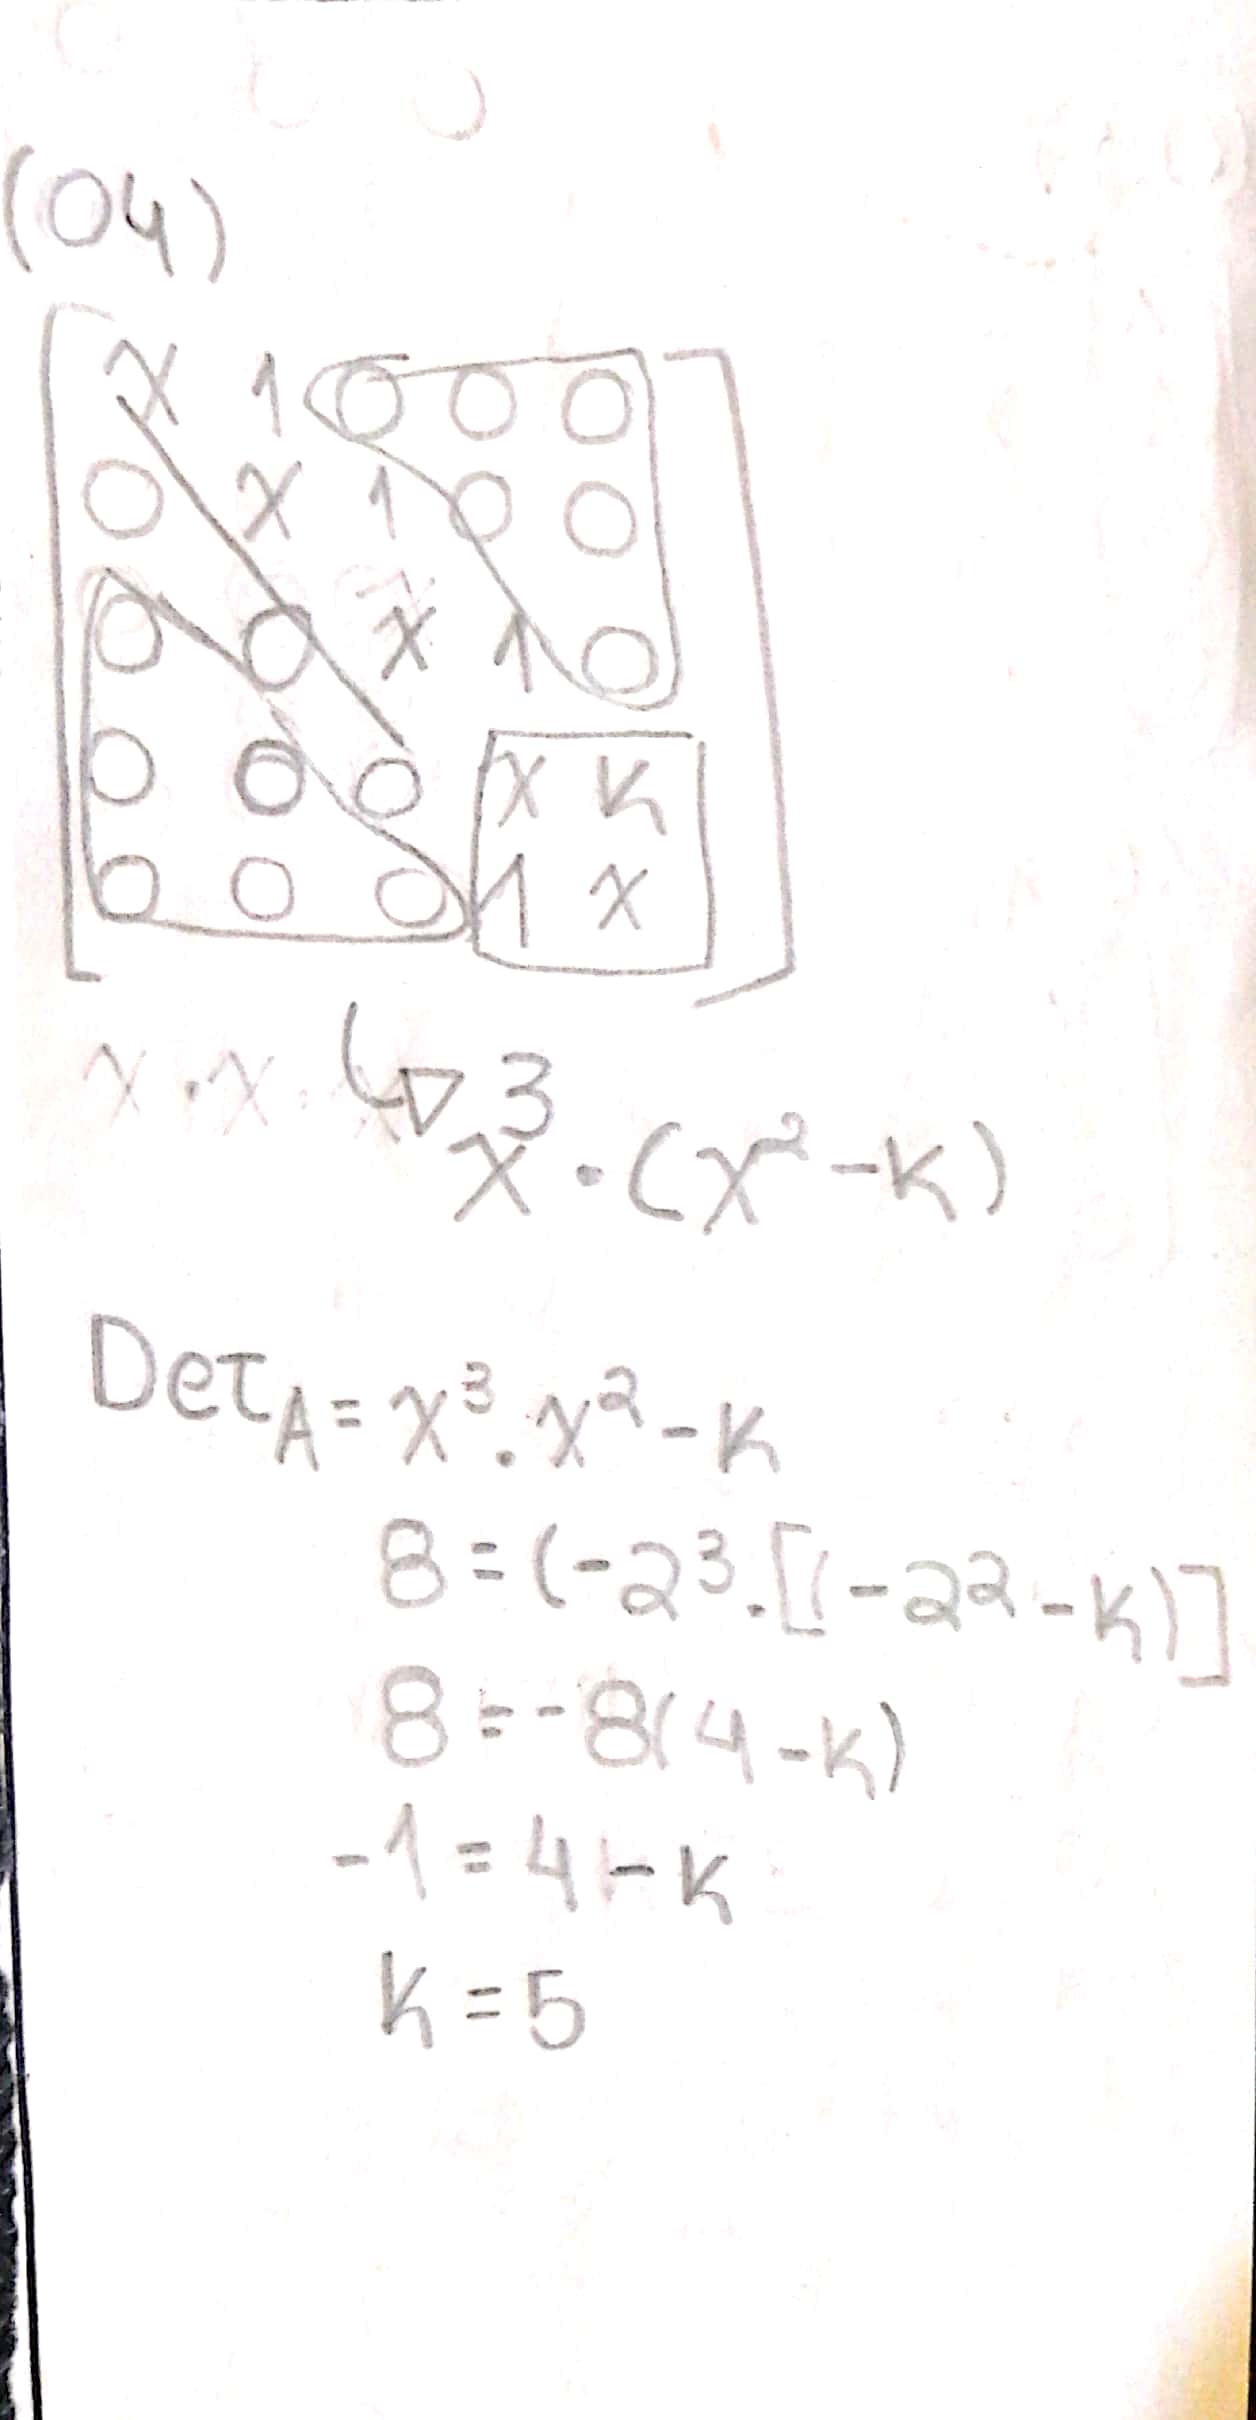 (04)
x 1 0 0 0
0 x 1 0 0
0 0 x 1 0
0 0 0 x k
0 0 0 1 x
x . x .
x³ . (x² - k)
Det A = x³ . x² - k
8 = (-2³ . [(-2² - k)]
8 = -8(4 - k)
-1 = 4 - k
k = 5